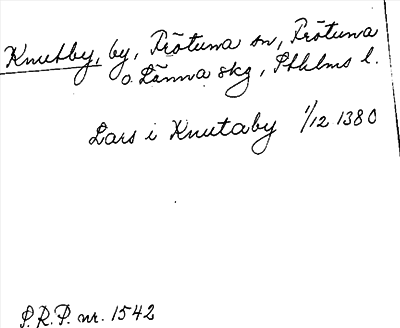 Knutby, by, Frötuna sn, Frötuna
o. Länna skg, Sthlms l.
Lars i Knutaby 1/12 1380
S.R.P. nr. 1542